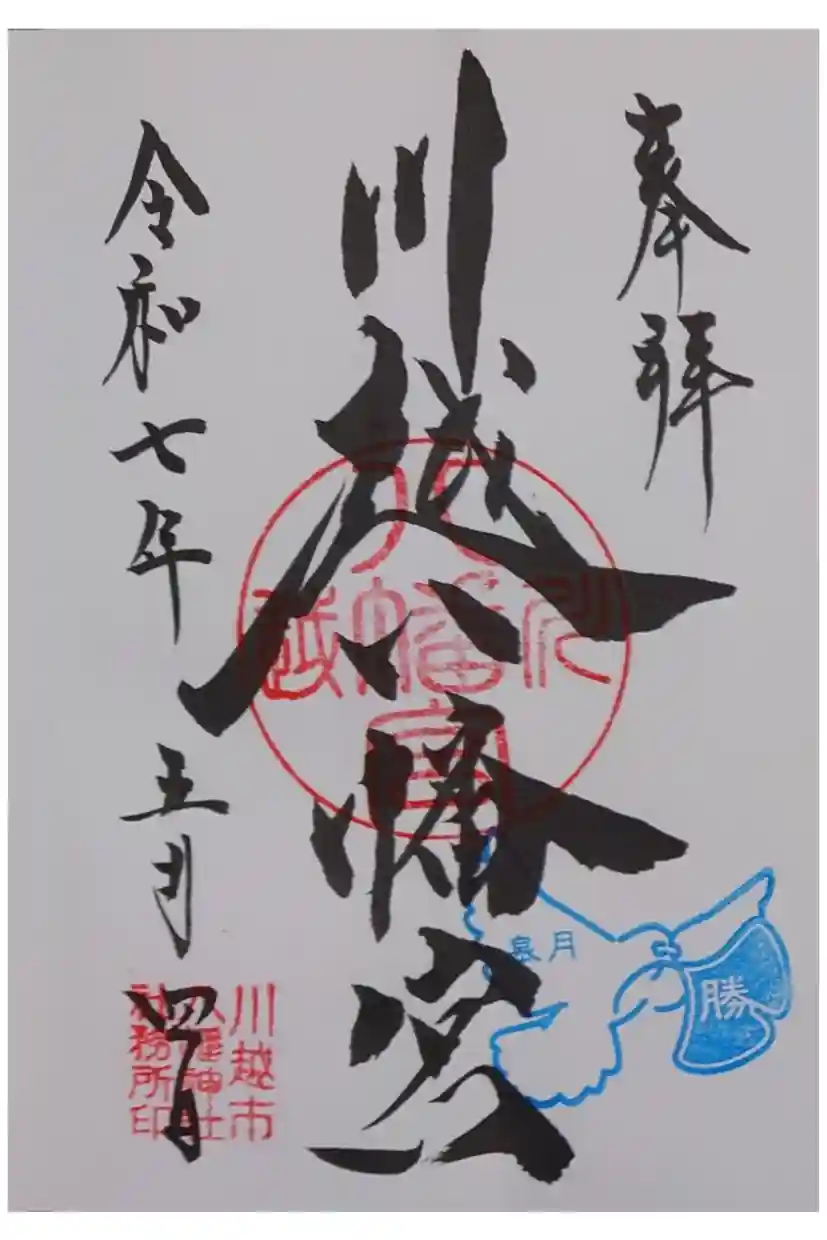 奉拝
川越八幡宮
令和七年五月四日
八幡宮
川越
皐月
勝
川越市
八幡神社
社務所印